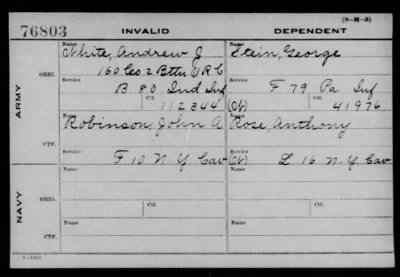 (3-M-3)
76803 INVALID DEPENDENT
Name Name
White, Andrew J Stein, George
160 Co 2 Bttn V R C
ORIG. Service Service
B 80 Ind Inf F 79 Pa Inf
Ctf. Ctf.
112344 (Cf) 41976
ARMY
Name Name
Robinson, John A Rose, Anthony
CTF. Service Service
F 10 N.Y. Cav (Cf) L 16 N.Y. Cav
Name Name
ORIG. Service Service
Ctf. Ctf.
NAVY
Name Name
CTF. Service Service